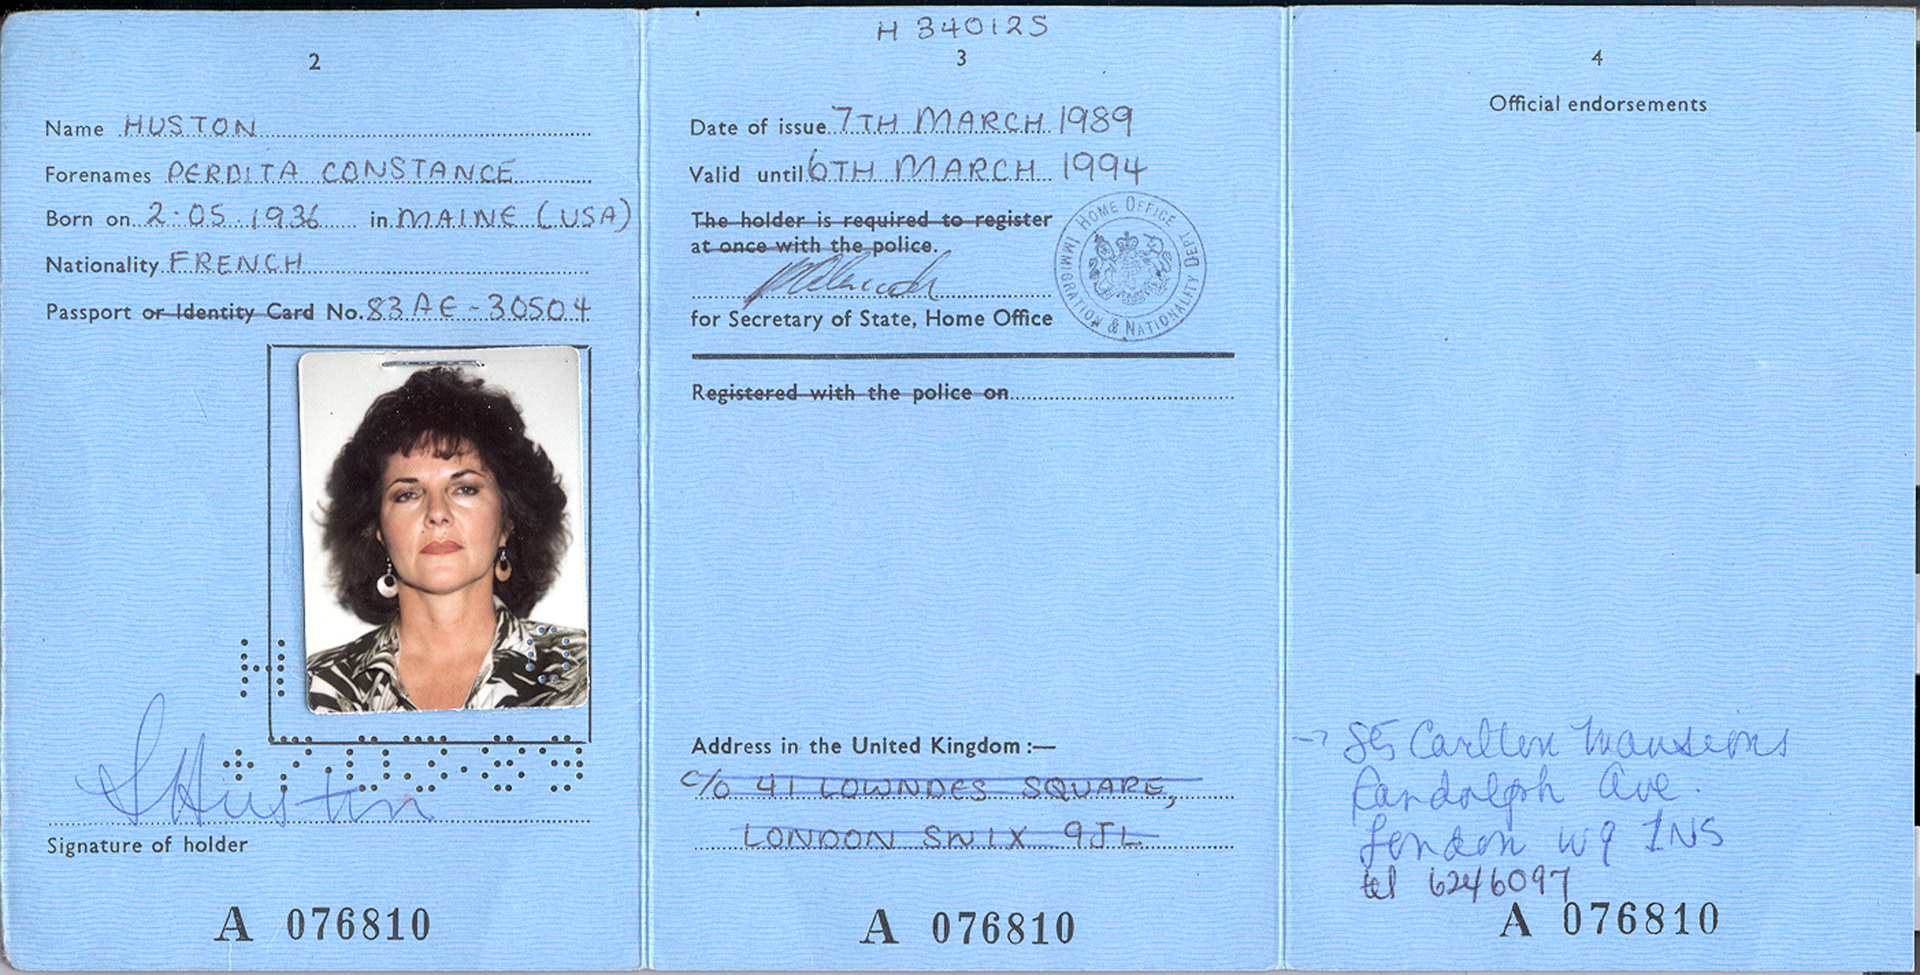 2
Name HUSTON
Forenames PERDITA CONSTANCE
Born on 2.05.1936 in MAINE (USA)
Nationality FRENCH
Passport or Identity Card No. 83AE-30504
H
Signature of holder
A 076810
H 340125
3
Date of issue 7TH MARCH 1989
Valid until 6TH MARCH 1994
The holder is required to register
at once with the police.
HOME OFFICE
IMMIGRATION & NATIONALITY DEPT
for Secretary of State, Home Office
Registered with the police on
Address in the United Kingdom :—
c/o 41 LOWNDES SQUARE,
LONDON SW1X 9JL
A 076810
4
Official endorsements
→ Carlton Mansions
Randolph Ave.
London W9 1NS
tel 6246097
A 076810